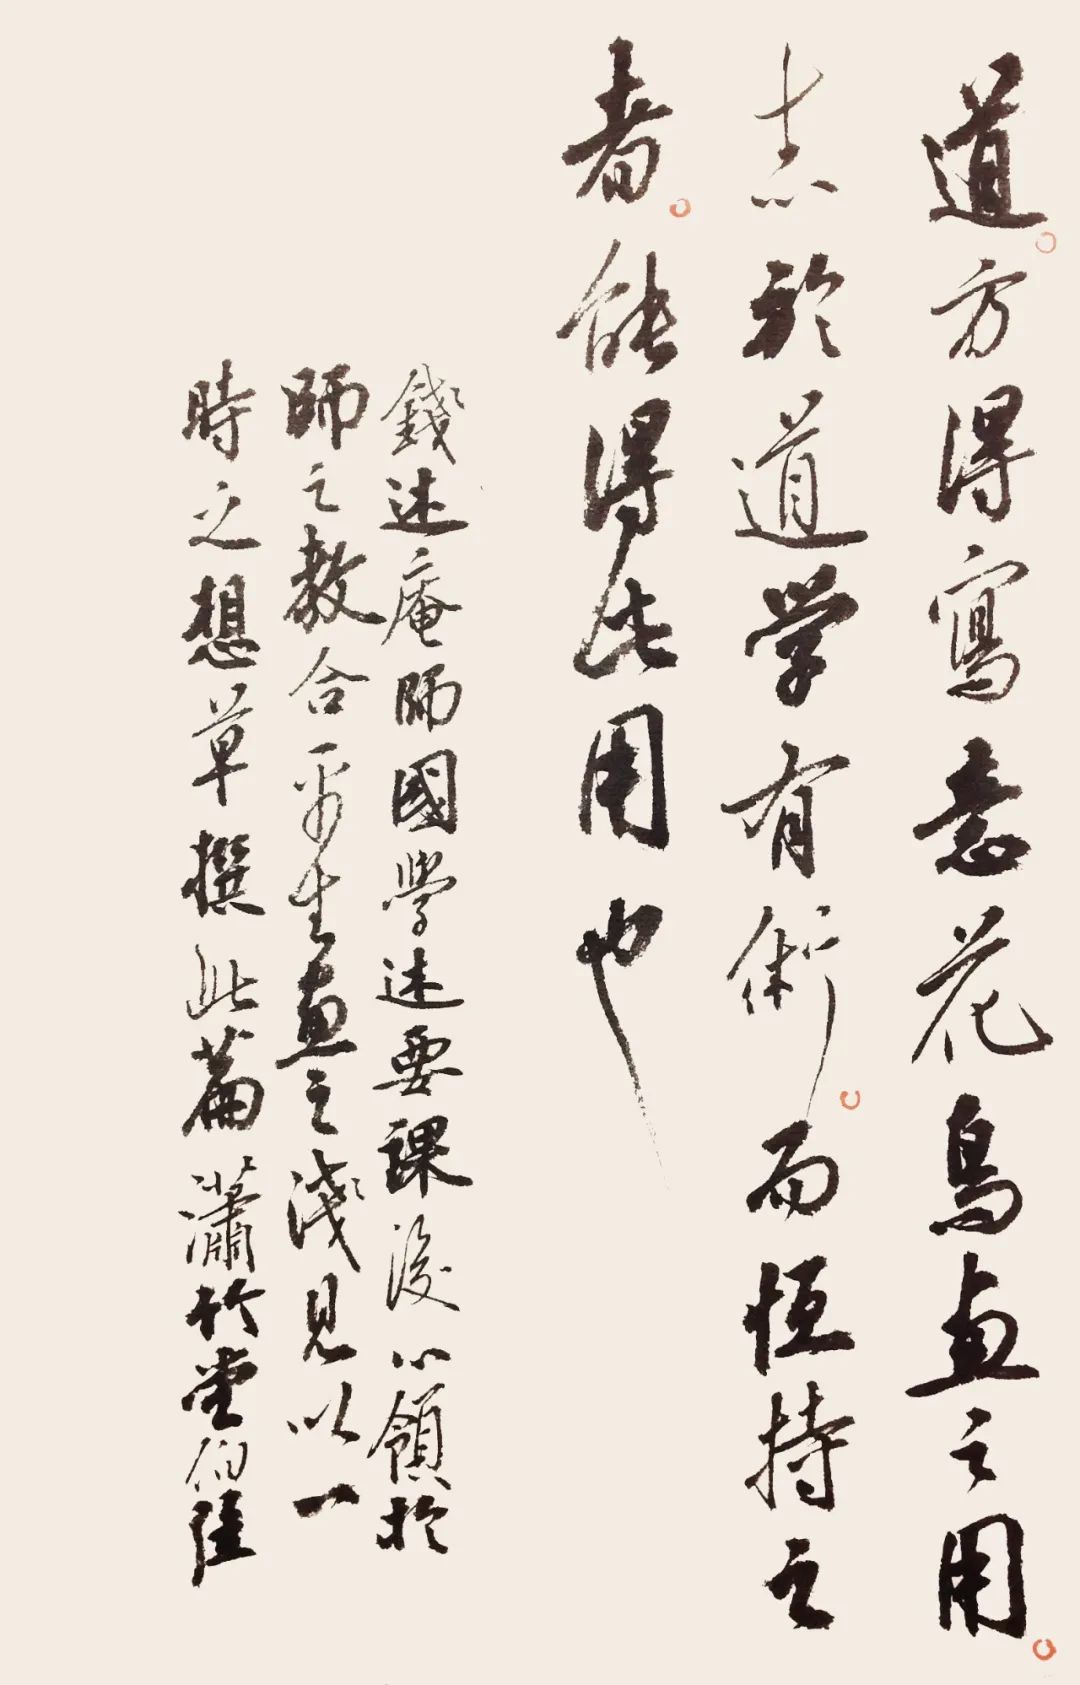 道方得寫意花鳥畫之用
志於道學有術而恒持之
者能得此用也
錢述庵師國學述要課後心領於
師之教合平生畫之淺見以一
時之想草撰此篇瀟竹堂伯